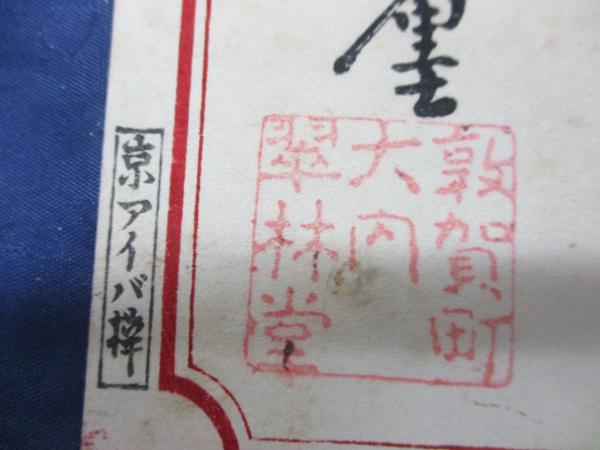 墨
敦賀町
大内
翠林堂
京アイバ撰